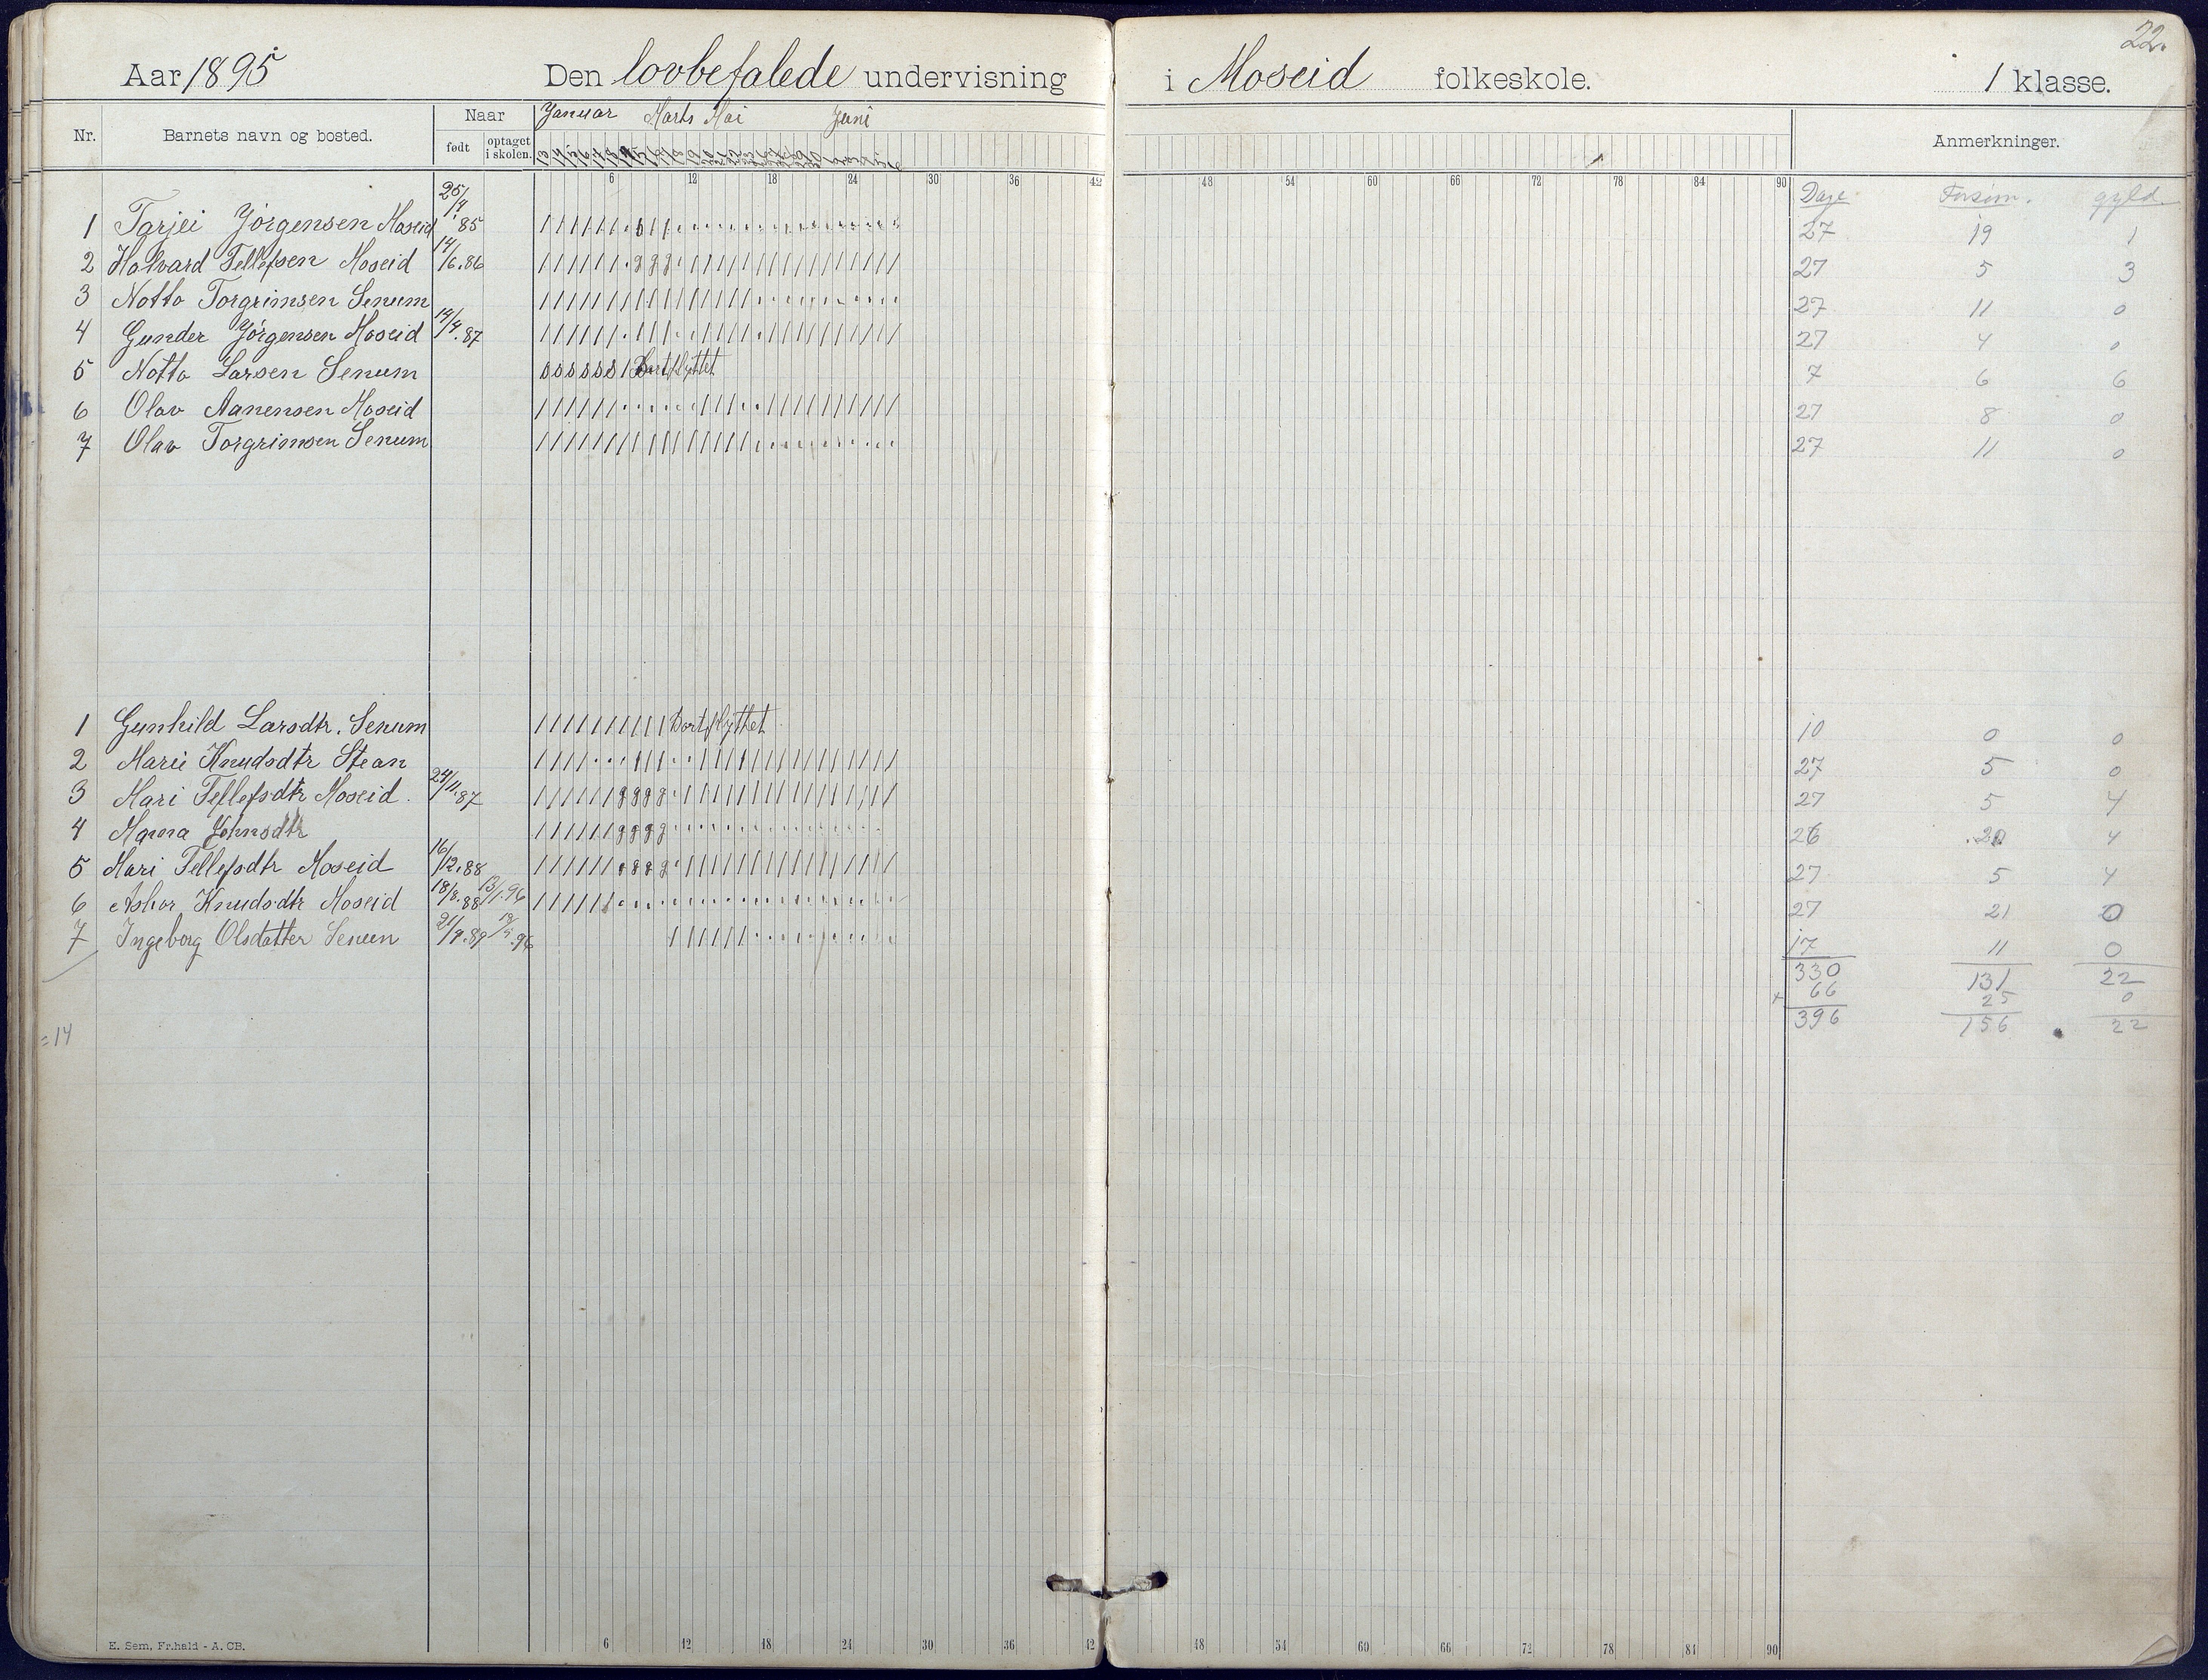 22.
Aar 1895 Den lovbefalede undervisning i Moseid folkeskole. 1 klasse.
Nr. Barnets navn og bosted. Naar født optaget i skolen. Januar Marts Mai Juni Anmerkninger.
6 12 18 24 30 36 42 48 54 60 66 72 78 84 90
Dage Forsøm. gyld.
1 Tarjei Jørgensen Moseid 25/4. 85 27 19 1
2 Halvard Tellefsen Moseid 14/6.86 27 5 3
3 Notto Torgrimsen Senum 27 11 0
4 Gunder Jørgensen Moseid 14/4.87 27 4 0
5 Notto Larsen Senum s s s s s s / Bortflyttet 7 6 6
6 Olav Aanensen Moseid 27 8 0
7 Olav Torgrimsen Senum 27 11 0
1 Gunhild Larsdtr. Senum Bortflyttet 10 0 0
2 Marie Knudsdtr Stean 27 5 0
3 Mari Tellefsdtr Moseid. 24/11.87 27 5 4
4 Johnsdtr 26 20 4
5 Mari Tellefsdtr Moseid 16/12.88 27 5 4
6 Knudsdtr Moseid 18/8.88 13/1.96 27 21 0
7 Ingeborg Olsdatter Senum 21/9.89 .96 17 11 0
330 131 22
+ 66 25 0
396 156 22
=14
E. Sem, Fr.hald - A. CB.
6 12 18 24 30 36 42 48 54 60 66 72 78 84 90